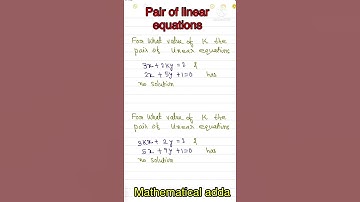 Pair of linear
equations
For What value of K the
pair of linear equations
3x + 2ky = 2 &
2x + 5y + 1 = 0 has
no solution
For What value of K the
pair of linear equations
3kx + 2y = 2 &
5x + 9y + 1 = 0 has
no solution
Mathematical adda